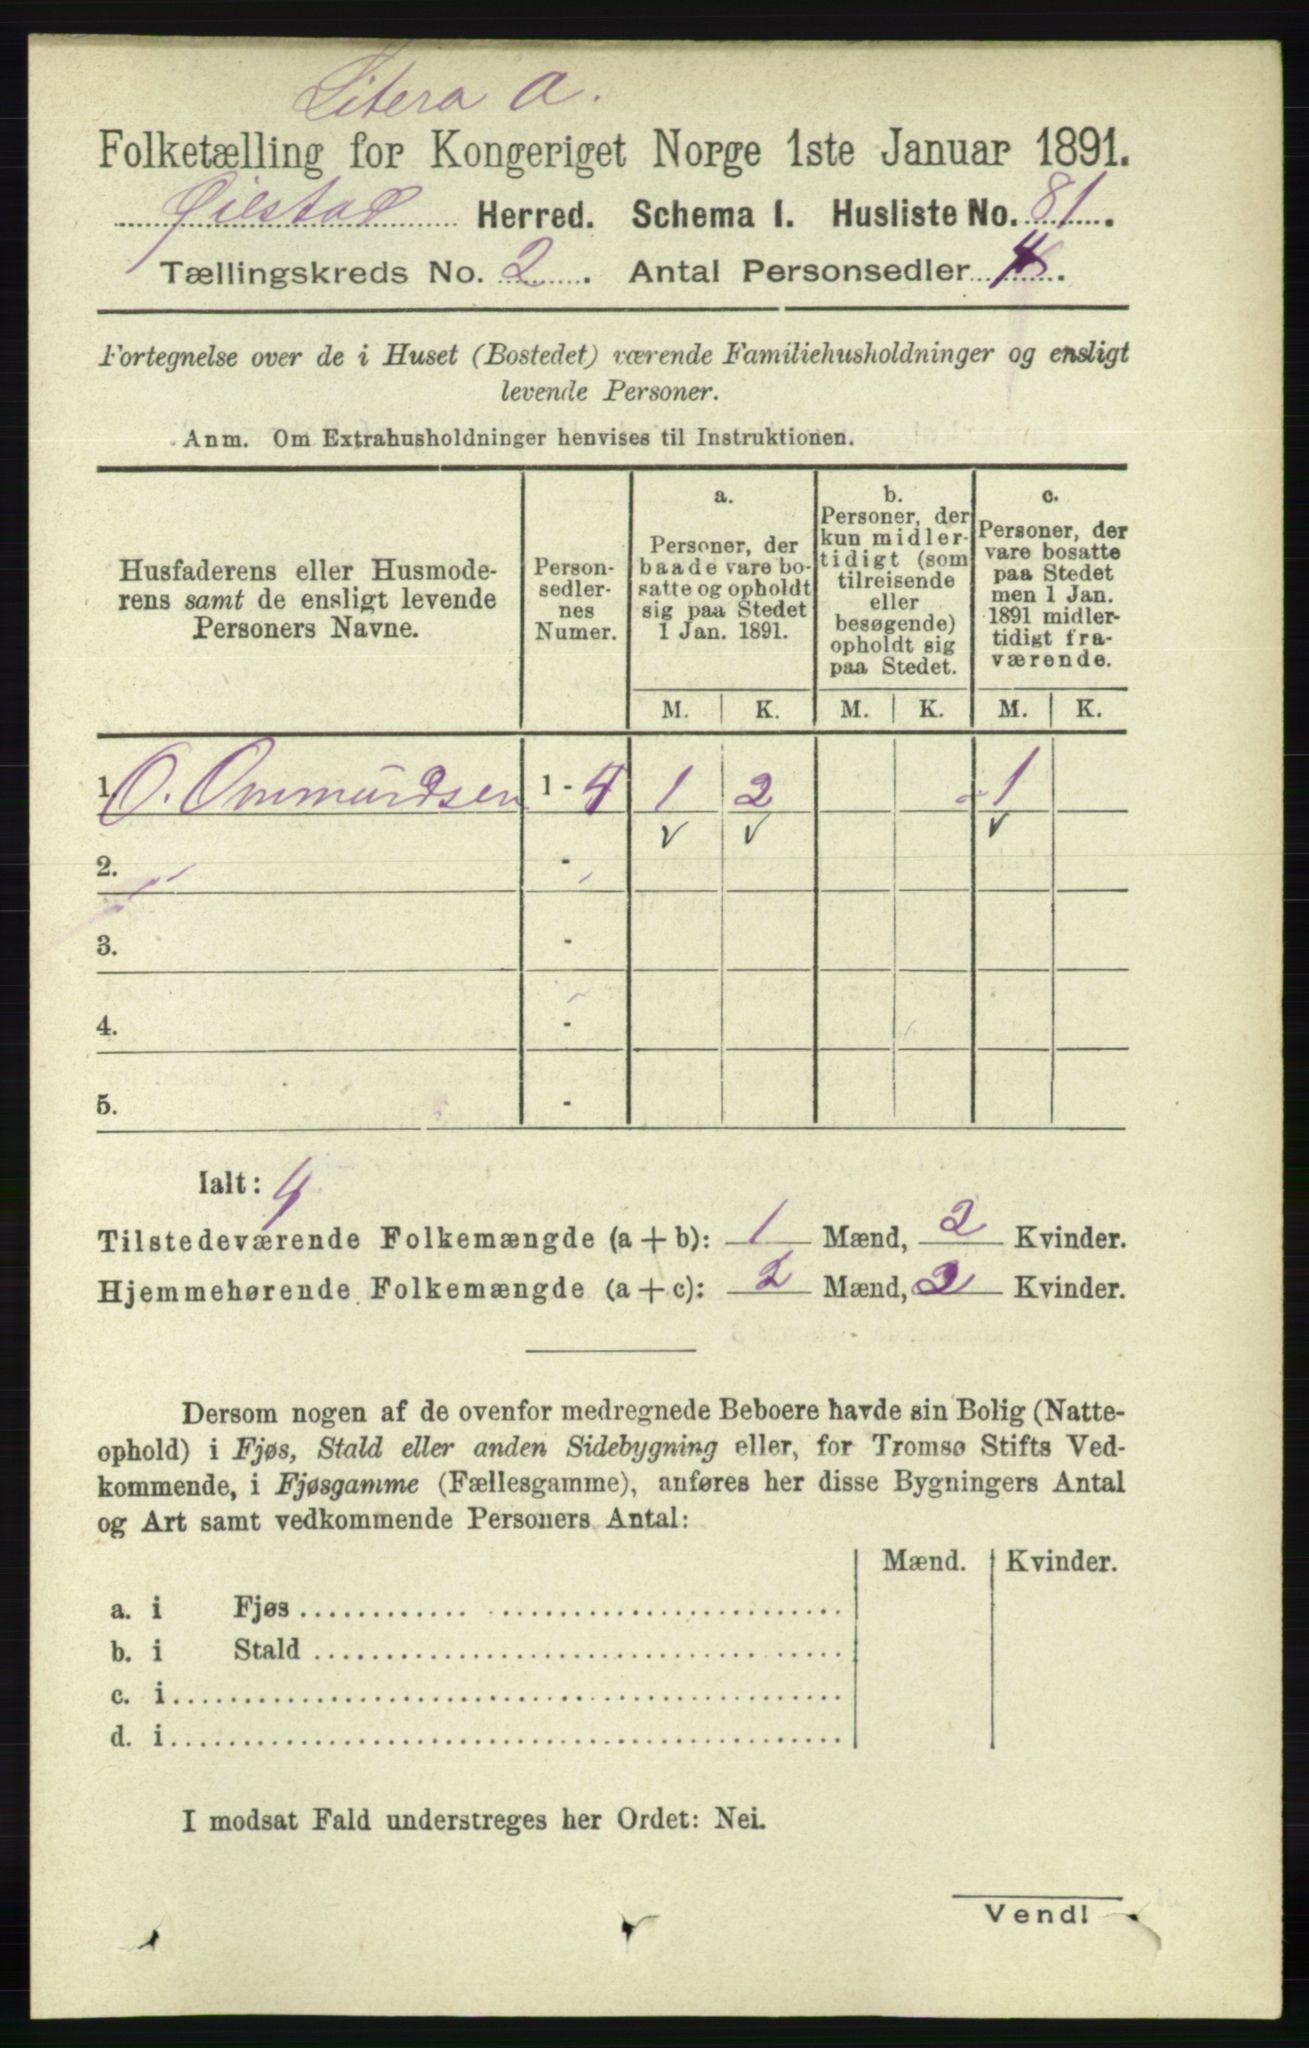 Litera A.
Folketælling for Kongeriget Norge 1ste Januar 1891.
Øiestad Herred. Schema I. Husliste No. 81.
Tællingskreds No. 2. Antal Personsedler 4.
Fortegnelse over de i Huset (Bostedet) værende Familiehusholdninger og ensligt
levende Personer.
Anm. Om Extrahusholdninger henvises til Instruktionen.
Husfaderens eller Husmode-
rens samt de ensligt levende
Personers Navne.
Person-
sedler-
nes
Numer.
a.
Personer, der
baade vare bo-
satte og opholdt
sig paa Stedet
1 Jan. 1891.
b.
Personer, der
kun midler-
tidigt (som
tilreisende
eller
besøgende)
opholdt sig
paa Stedet.
c.
Personer, der
vare bosatte
paa Stedet
men 1 Jan.
1891 midler-
tidigt fra-
værende.
M. K. M. K. M. K.
1. O. Ommundsen 1 - 4 1 2 1
2. -
3. -
4. -
5. -
Ialt: 4
Tilstedeværende Folkemængde (a + b): 1 Mænd, 2 Kvinder.
Hjemmehørende Folkemængde (a + c): 2 Mænd, 2 Kvinder.
Dersom nogen af de ovenfor medregnede Beboere havde sin Bolig (Natte-
ophold) i Fjøs, Stald eller anden Sidebygning eller, for Tromsø Stifts Ved-
kommende, i Fjøsgamme (Fællesgamme), anføres her disse Bygningers Antal
og Art samt vedkommende Personers Antal:
Mænd. Kvinder.
a. i Fjøs
b. i Stald
c. i
d. i
I modsat Fald understreges her Ordet: Nei.
Vend!